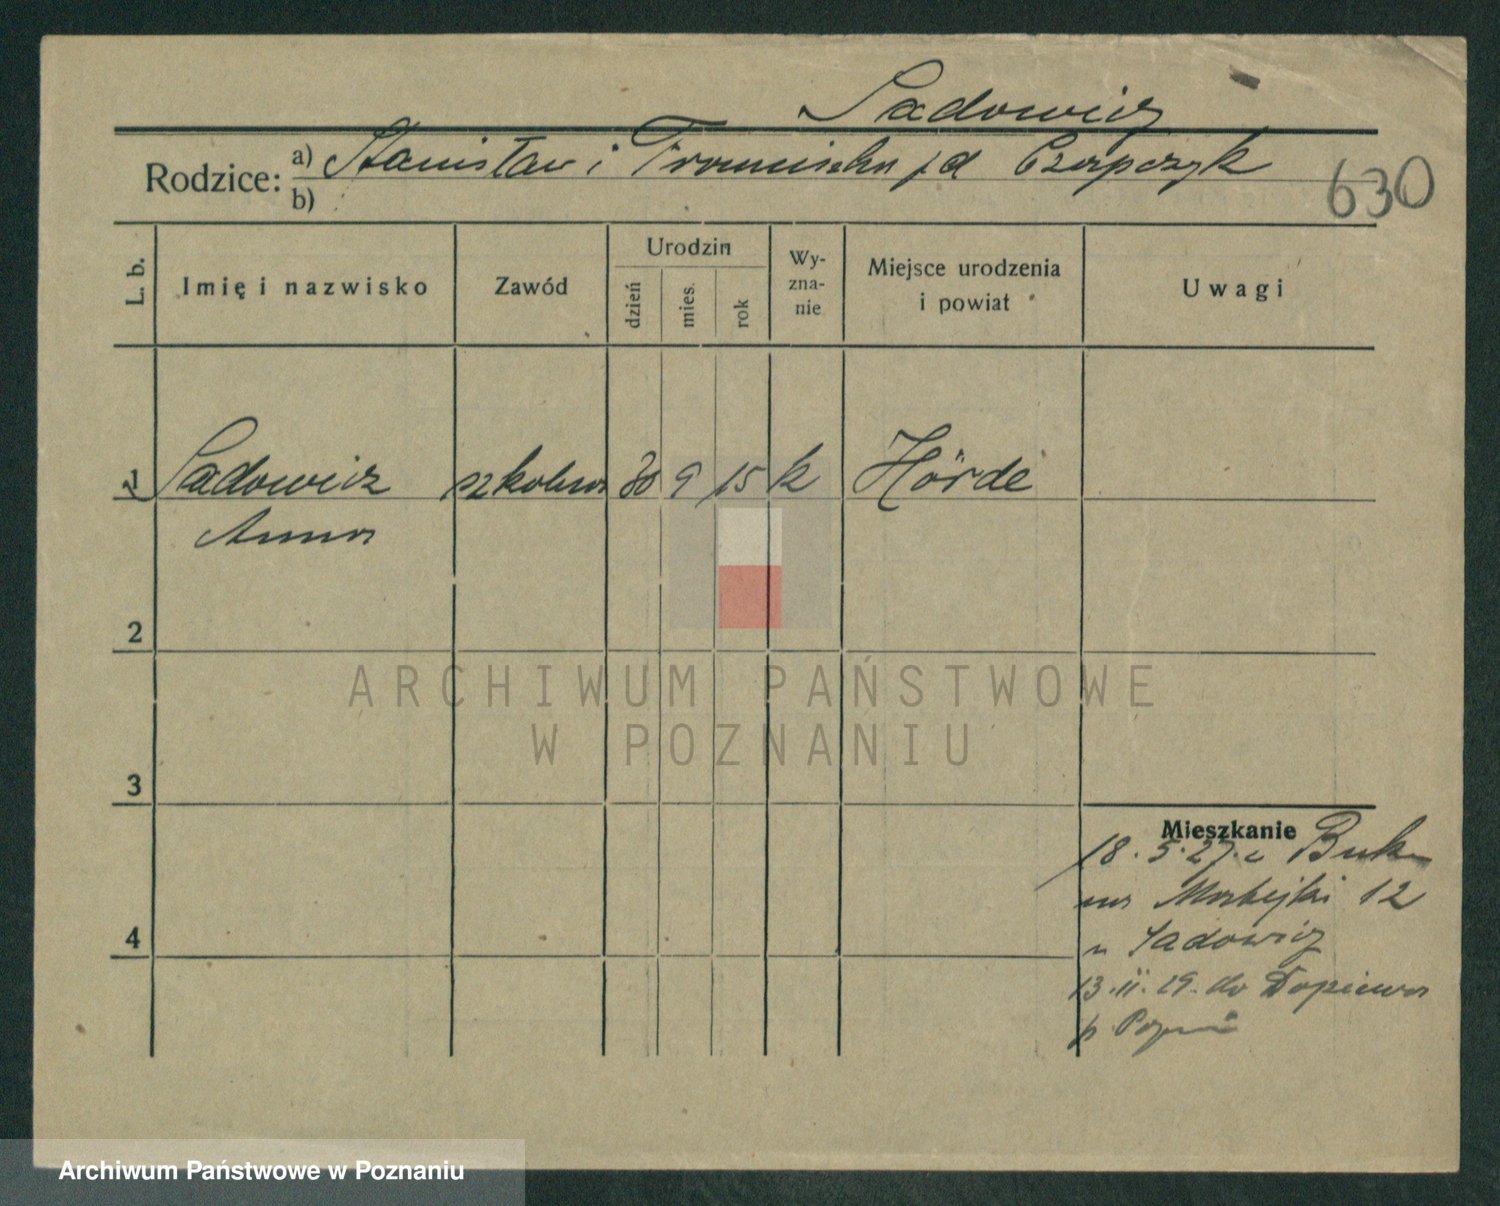 Sadowicz
Rodzice: a) Stanisław i Franciszka z d Czerpczyk
b)
630
L. b. Imię i nazwisko Zawód Urodzin dzień mies. rok Wy-zna-nie Miejsce urodzenia i powiat Uwagi
1 Sadowicz szkolna 30 9 15 k Hörde
Anna
2
3
4
Mieszkanie
18.5.27. z Buku
12
u Sadowicz
13.11.29. do Dopiewa
p.
ARCHIWUM PAŃSTWOWE
W POZNANIU
Archiwum Państwowe w Poznaniu